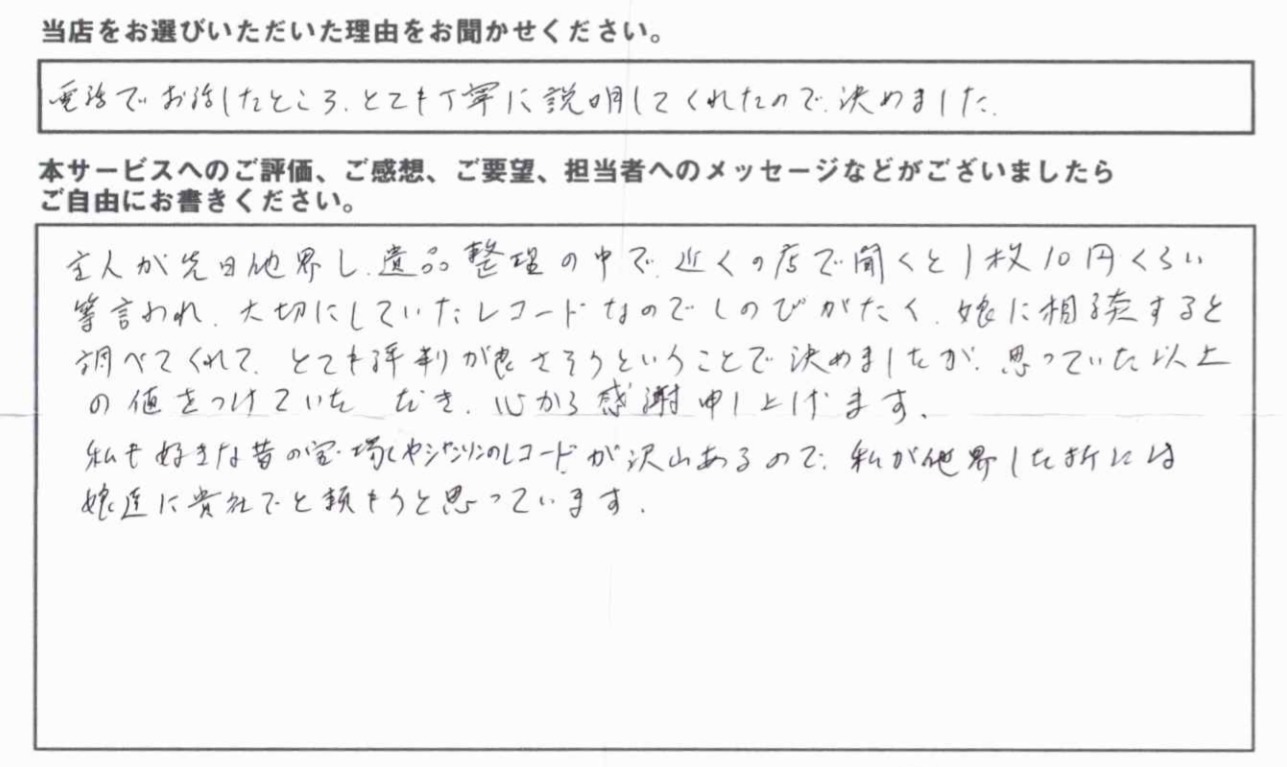 当店をお選びいただいた理由をお聞かせください。
電話でお話したところ、とても丁寧に説明してくれたので、決めました。
本サービスへのご評価、ご感想、ご要望、担当者へのメッセージなどがございましたら
ご自由にお書きください。
主人が先日他界し、遺品整理の中で、近くの店で聞くと1枚10円くらい
等言われ、大切にしていたレコードなのでしのびがたく、娘に相談すると
調べてくれて、とても評判が良さそうということで決めましたが、思っていた以上
の値をつけていただき、心から感謝申し上げます。
私も好きな昔の宝塚やシャンソンのレコードが沢山あるので、私が他界した折には
娘達に貴社でと頼もうと思っています。